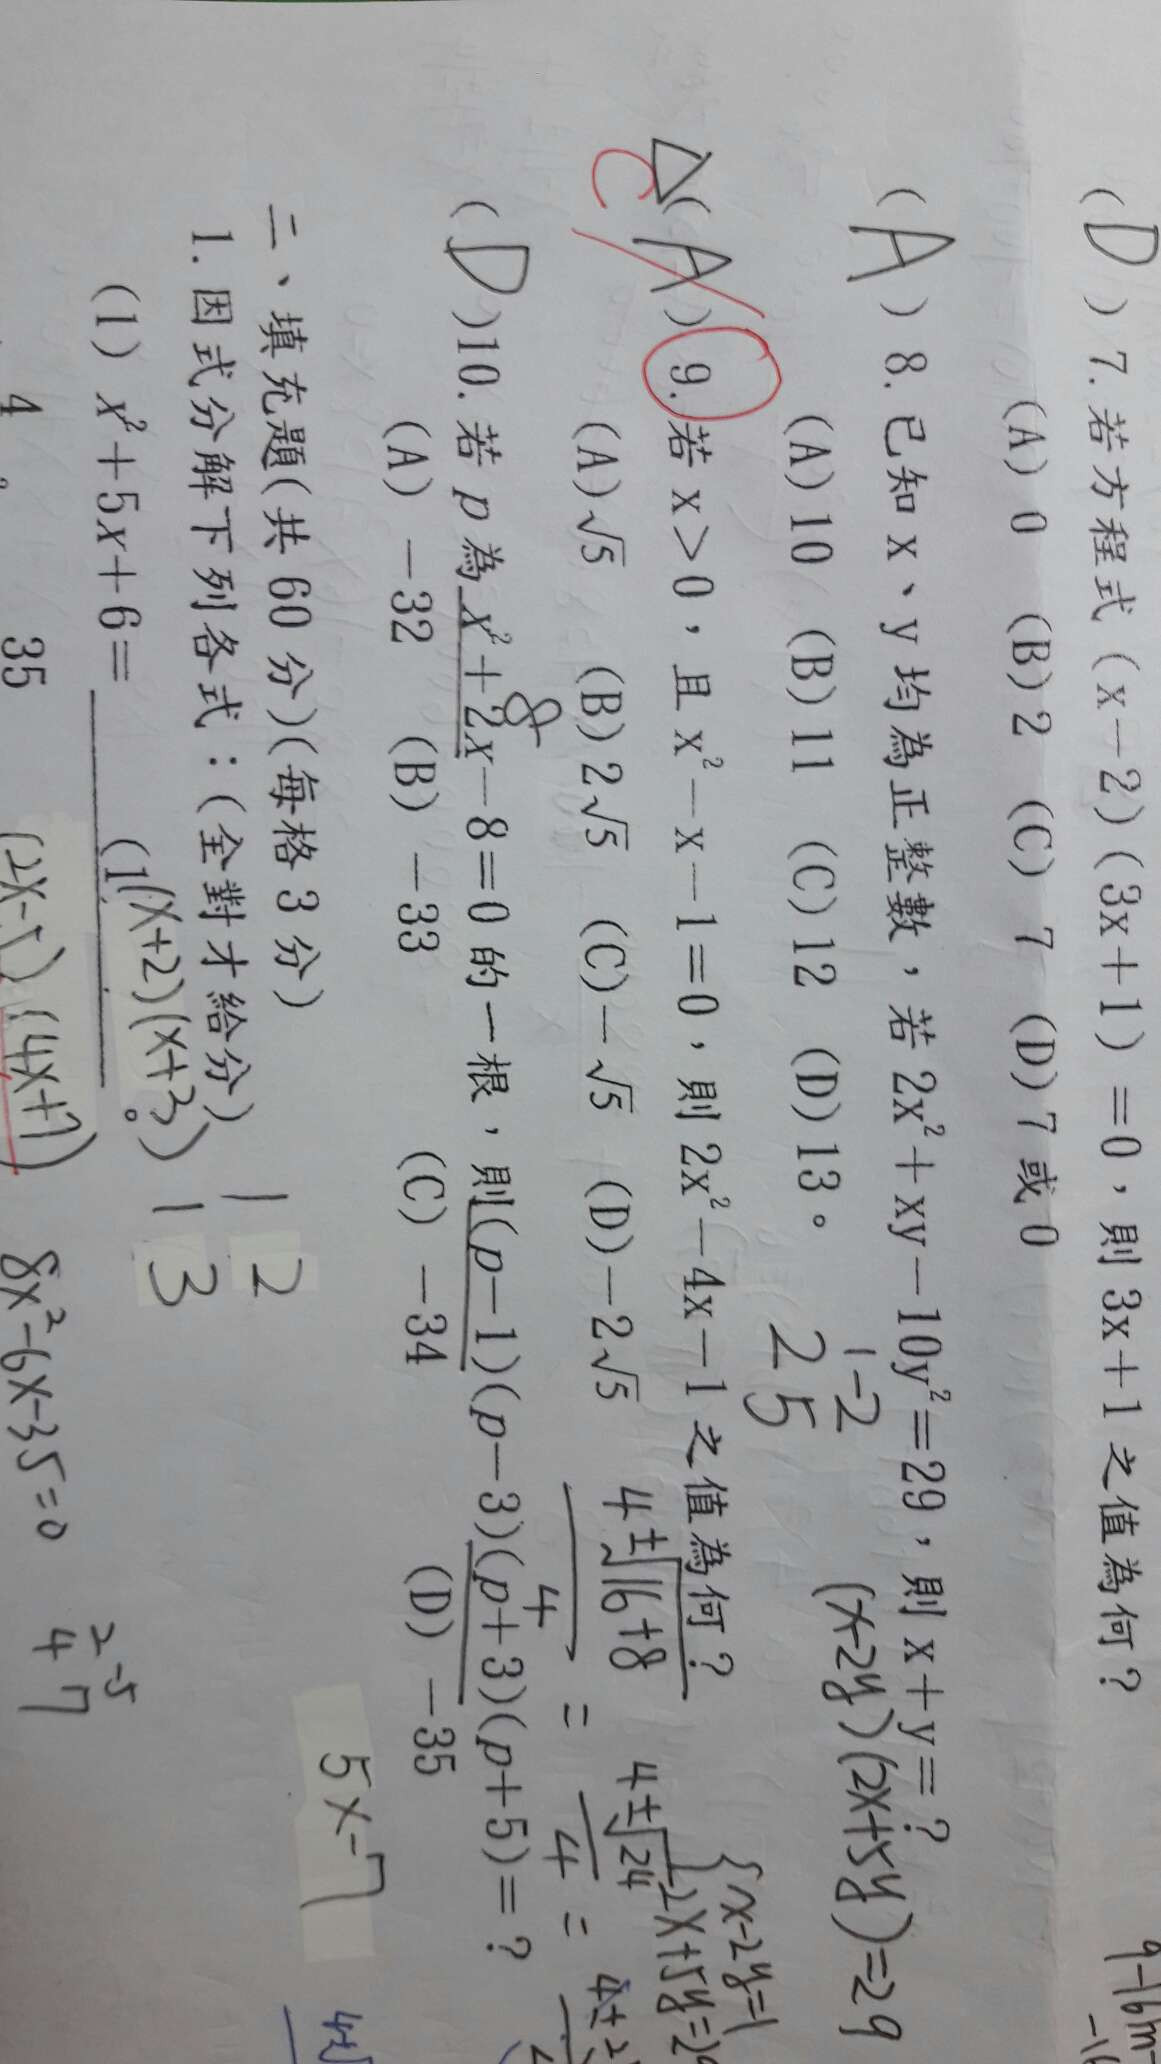 (D) 7. 若方程式 (x－2)(3x＋1)＝0，則 3x＋1 之值為何？
(A) 0 (B) 2 (C) 7 (D) 7 或 0
(A) 8. 已知 x、y 均為正整數，若 2x²＋xy－10y²＝29，則 x＋y＝？
(A) 10 (B) 11 (C) 12 (D) 13。
1 -2
2 5
(x-2y)(2x+5y)=29
{x-2y=1
2x+5y=29
C
△(A) 9. 若 x＞0，且 x²－x－1＝0，則 2x²－4x－1 之值為何？
(A) √5 (B) 2√5 (C)－√5 (D)－2√5
4±√16+8
4
= 4±√24
4
=
(D) 10. 若 p 為 x²＋2x－8＝0 的一根，則(p－1)(p－3)(p＋3)(p＋5)＝？
8
(A) －32 (B) －33 (C) －34 (D) －35
5x-7
二、填充題(共 60 分)(每格 3 分)
1. 因式分解下列各式：(全對才給分)
1 2
1 3
(1) x²＋5x＋6＝ (x+2)(x+3)。
4
35
(2x-5)(4x+7)
8x²-6x-35=0
2 -5
4 7